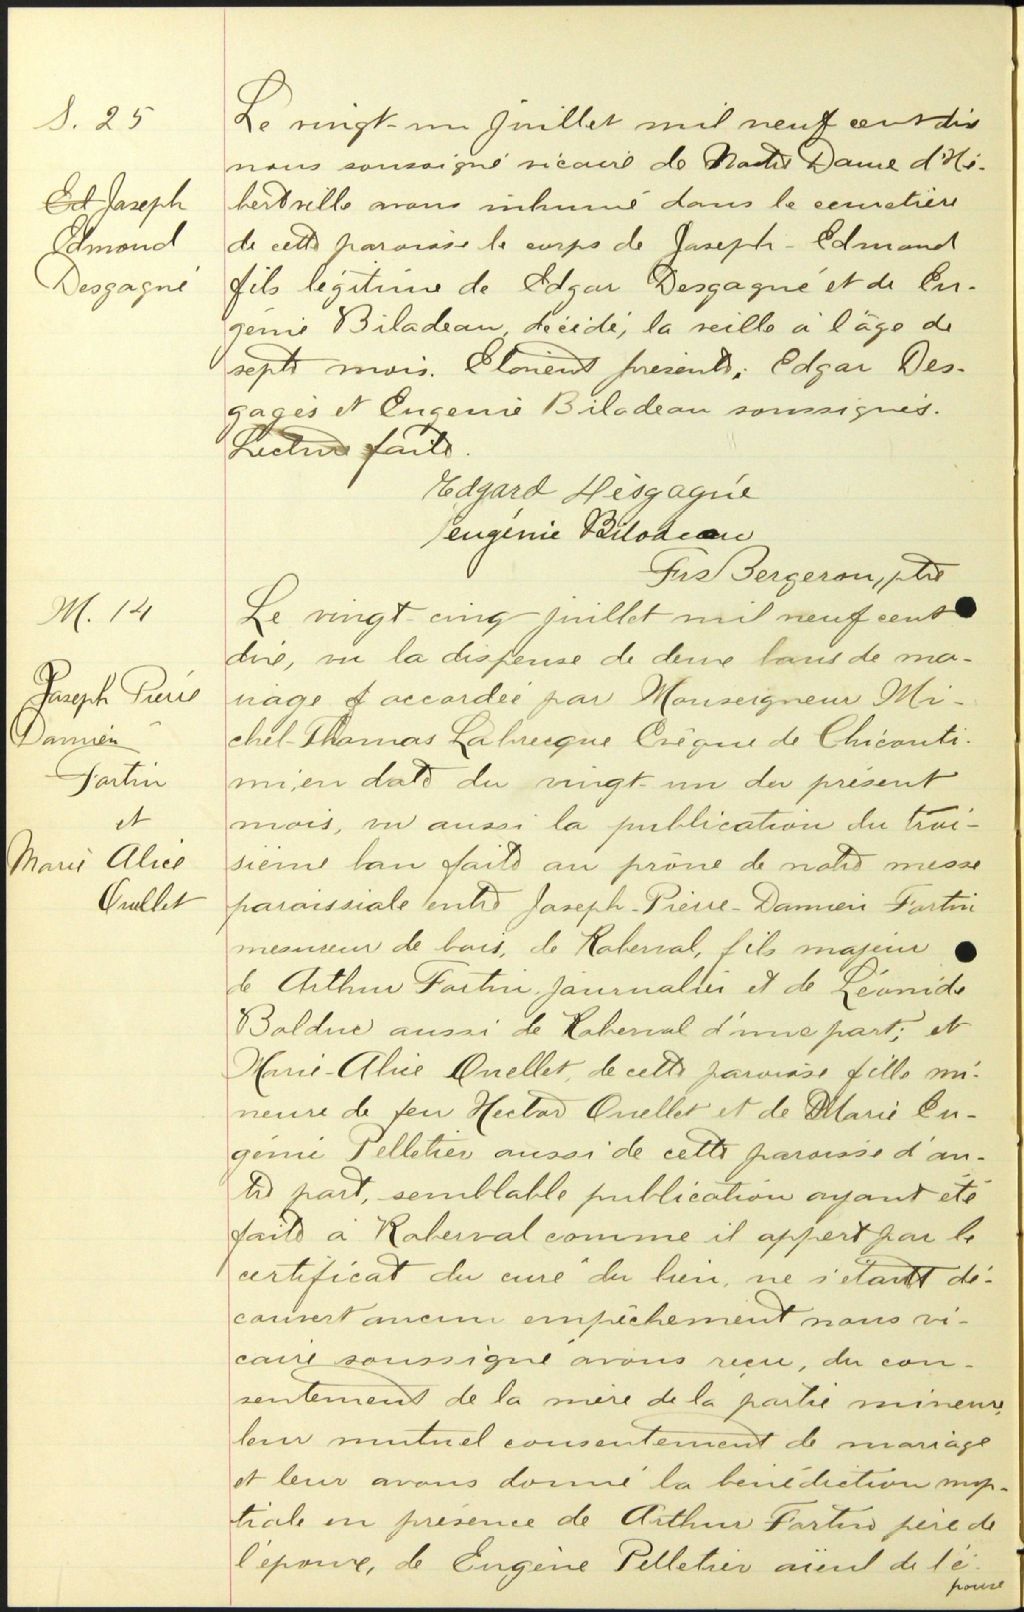 S. 25
Ed Joseph
Edmond
Desgagné
Le vingt-un juillet mil neuf cent dix
nous soussigné vicaire de Notre Dame d'Hé-
bertville avons inhumé dans le cimetière
de cette paroisse le corps de Joseph-Edmond
fils légitime de Edgar Desgagné et de Eu-
génie Biladeau, décédé, la veille à l'âge de
sept mois. Etaient présents: Edgar Des-
gagés et Eugenie Biladeau soussignés.
Lecture faite.
Edgard Désgagnée
eugénie Bilodeau
Frs Bergeron, ptre
M. 14
Joseph Pierre
Damien
Fortin
et
Marie Alice
Ouellet
Le vingt-cinq juillet mil neuf cent
dix, vu la dispense de deux bans de ma-
riage accordée par Monseigneur Mi-
chel-Thomas Labrecque Evêque de Chicouti-
mi, en date du vingt-un du présent
mois, vu aussi la publication du troi-
sième ban faite au prône de notre messe
paroissiale entre Joseph-Pierre-Damien Fortin
mesureur de bois, de Roberval, fils majeur
de Arthur Fortin journalier et de Léonide
Bolduc aussi de Roberval d'une part; et
Marie-Alice Ouellet, de cette paroisse fille mi-
neure de feu Hector Ouellet et de Marie Eu-
génie Pelletier aussi de cette paroisse d'au-
tre part, semblable publication ayant été
faite à Roberval comme il appert par le
certificat du curé du lieu, ne s'étant dé-
couvert aucun empêchement nous vi-
caire soussigné avons reçu, du con-
sentement de la mère de la partie mineure,
leur mutuel consentement de mariage
et leur avons donné la bénédiction nup-
tiale en présence de Arthur Fortin père de
l'époux, de Eugène Pelletier aïeul de l'é-
pouse